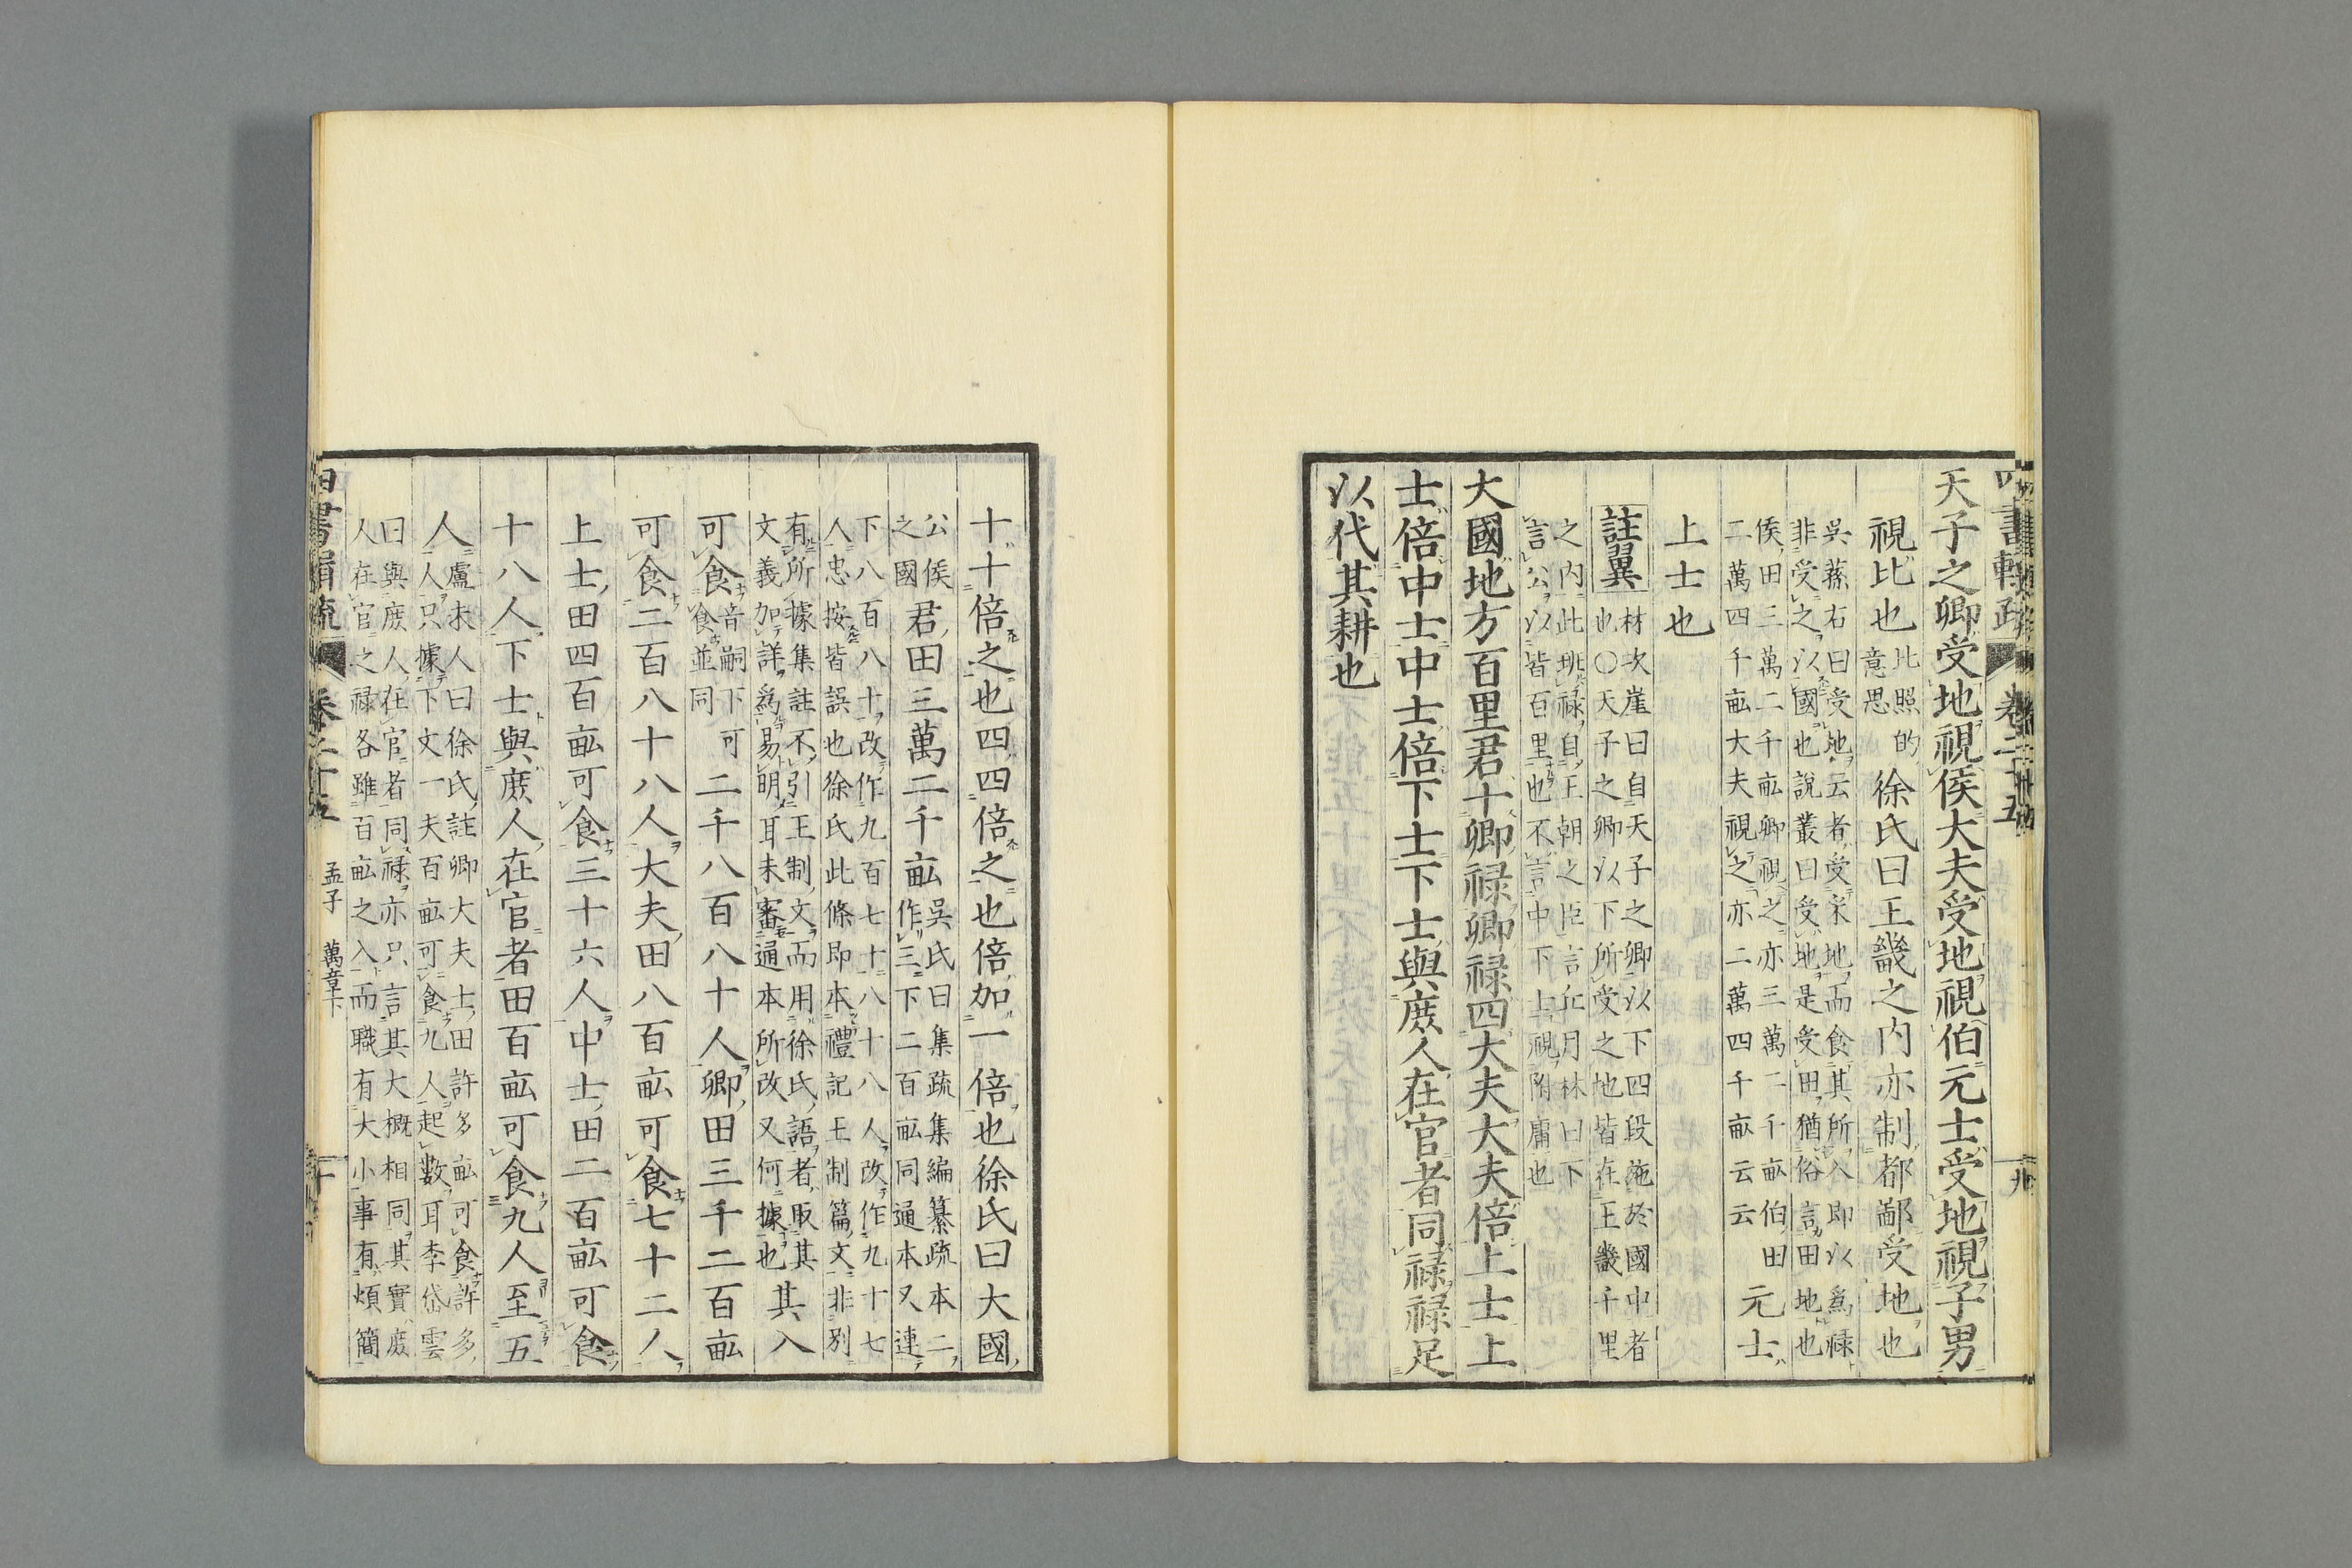 天子之卿受地視侯大夫受地視伯元士受地視子男
視比也比照的
意思徐氏曰王畿之内亦制都鄙受地也
呉蓀右曰受地云者受采地而食其所入即以爲禄
非受之以國也說叢曰受地是受田猶俗言田地也
侯田三萬二千畝卿視之亦三萬二千畝伯田
二萬四千畝大夫視之亦二萬四千畝云云元士
上士也
註翼材次崖曰自天子之卿以下四段施於國中者
也〇天子之卿以下所受之地皆在王畿千里
之内此班禄自王朝之臣言丘月林曰下
言公以皆百里也不言中下士視附庸也
大國地方百里君十卿禄卿禄四大夫大夫倍上士上
士倍中士中士倍下士下士與庶人在官者同禄禄足
以代其耕也
十十倍之也四四倍之也倍加一倍也徐氏曰大國
公侯
之國君田三萬二千畝呉氏曰集疏集編纂疏本二
作三下二百畝同通本又連
下八百八十改作九百七十八十八人改作九十七
人忠按皆誤也徐氏此條即本禮記王制篇文非別
有所據集註不引王制文而用徐氏語者取其
文義加詳爲易明耳未審通本所改又何據也其入
可食音嗣下可
食並同二千八百八十人卿田三千二百畝
可食二百八十八人大夫田八百畝可食七十二人
上士田四百畝可食三十六人中士田二百畝可食
十八人下士與庶人在官者田百畝可食九人至五
人盧未人曰徐氏註卿大夫士田許多畝可食許多
人只據下文一夫百畝可食九人起數耳李岱雲
曰與庶人在官者同禄亦只言其大概相同其實庶
人在官之禄各雖百畝之入而職有大小事有煩簡
孟子　萬章下